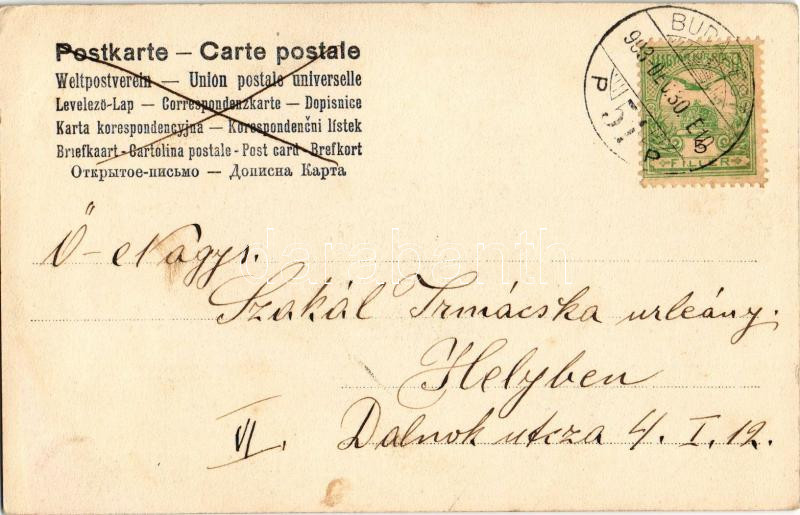 Postkarte — Carte postale
Weltpostverein — Union postale universelle
Levelező-Lap — Correspondenzkarte — Dopisnice
Karta korespondencyjna — Korespondenční lístek
Briefkaart - Cartolina postale - Post card - Brefkort
Открытое-письмо — Дописна Карта
BUDAPEST
903 DEC. 30. E
P 51 P
5
FILLÉR
Ő-Nagys.
Szakál Irmácska urleány.
Helyben
VI. Dalnok utcza 4. I. 12.
darabanth